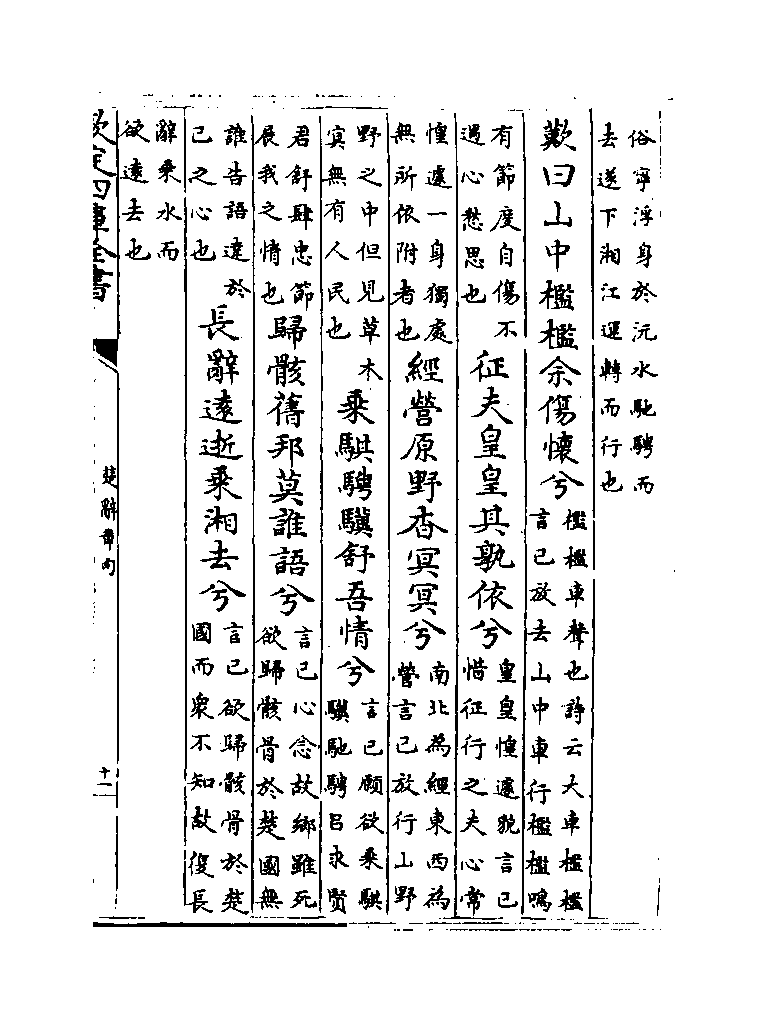 俗寧浮身於沅水馳騁而
去遂下湘江運轉而行也
歎曰山中檻檻余傷懷兮檻檻車聲也詩云大車檻檻言已放去山中車行檻檻鳴
有節度自傷不遇心愁思也征夫皇皇其孰依兮皇皇惶遽貌言已惜征行之夫心常
惶遽一身獨處無所依附者也經營原野杳冥冥兮南北為經東西為營言已放行山野
野之中但見草木寞無有人民也乘騏騁驥舒吾情兮言已願欲乘騏驥馳騁吕求賢
君舒肆忠節展我之情也歸骸舊邦莫誰語兮言已心念故鄉雖死欲歸骸骨於楚國無
誰告語達於已之心也長辭遠逝乘湘去兮言已欲歸骸骨於楚國而衆不知故復長
辭乘水而欲遠去也
欽定四庫全書
楚辭章句
十一